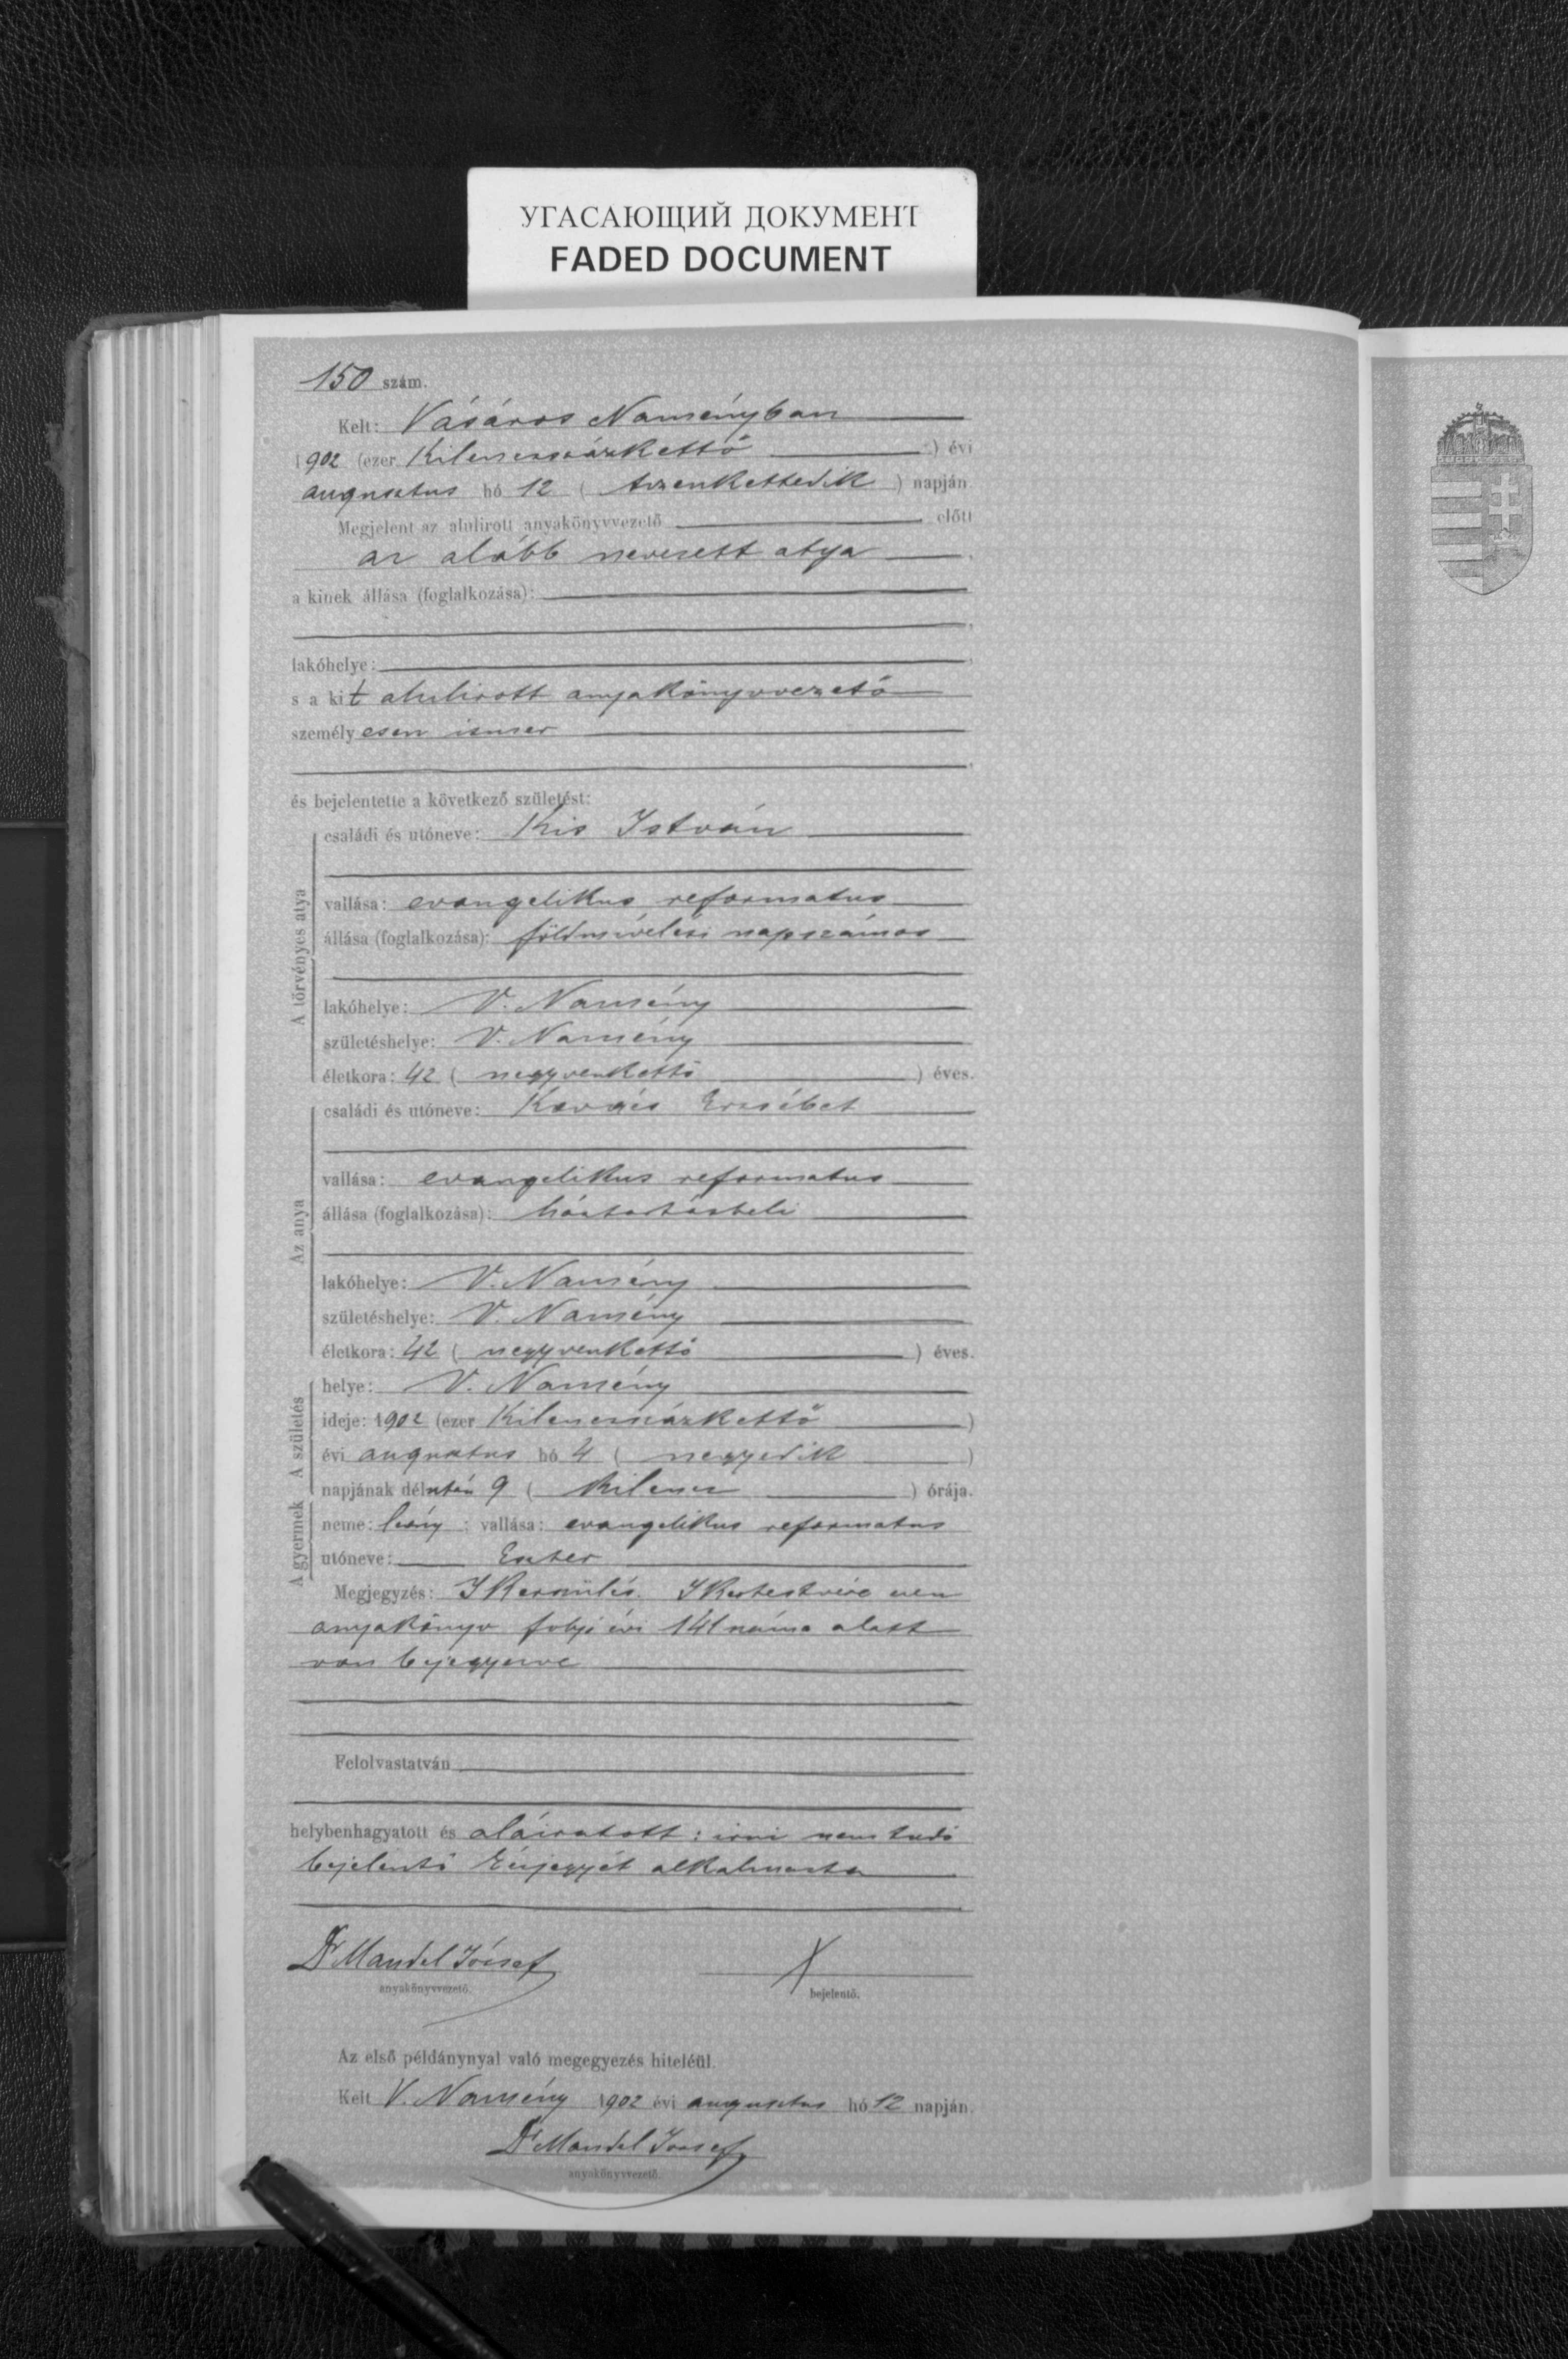 УГАСАЮЩИЙ ДОКУМЕНТ
FADED DOCUMENT
150 szám.
Kelt: Vásáros Naményban
1902 (ezer Kilencszázkettő) évi
augusztus hó 12 (tizenkettedik) napján.
Megjelent az alulirott anyakönyvvezető előtt
az alább nevezett atya,
a kinek állása (foglalkozása):
lakóhelye:
s a kit alulirott anyakönyvvezető
személyesen ismer
és bejelentette a következő születést:
A törvényes atya
családi és utóneve: Kis István
vallása: evangelikus reformatus
állása (foglalkozása): földmívelési napszámos
lakóhelye: V. Namény
születéshelye: V. Namény
életkora: 42 (negyvenkettő) éves.
Az anya
családi és utóneve: Kovács Erzsébet
vallása: evangelikus reformatus
állása (foglalkozása): háztartásbeli
lakóhelye: V. Namény
születéshelye: V. Namény
életkora: 42 (negyvenkettő) éves.
A születés
helye: V. Namény
ideje: 1902 (ezer Kilencszázkettő)
évi augusztus hó 4 (negyedik)
napjának délután 9 (kilencz) órája.
A gyermek
neme: leány; vallása: evangelikus reformatus
utóneve: Eszter
Megjegyzés: Ikerszülés. Ikertestvére ezen
anyakönyv folyó évi 141 száma alatt
van bejegyezve
Felolvastatván
helybenhagyatott és aláiratott: irni nem tudó
bejelentő kézjegyét alkalmazta
Dr Mandel József
anyakönyvvezető.
X
bejelentő.
Az első példánynyal való megegyezés hiteléül.
Kelt V. Namény 1902 évi augusztus hó 12 napján.
Dr Mandel József
anyakönyvvezető.